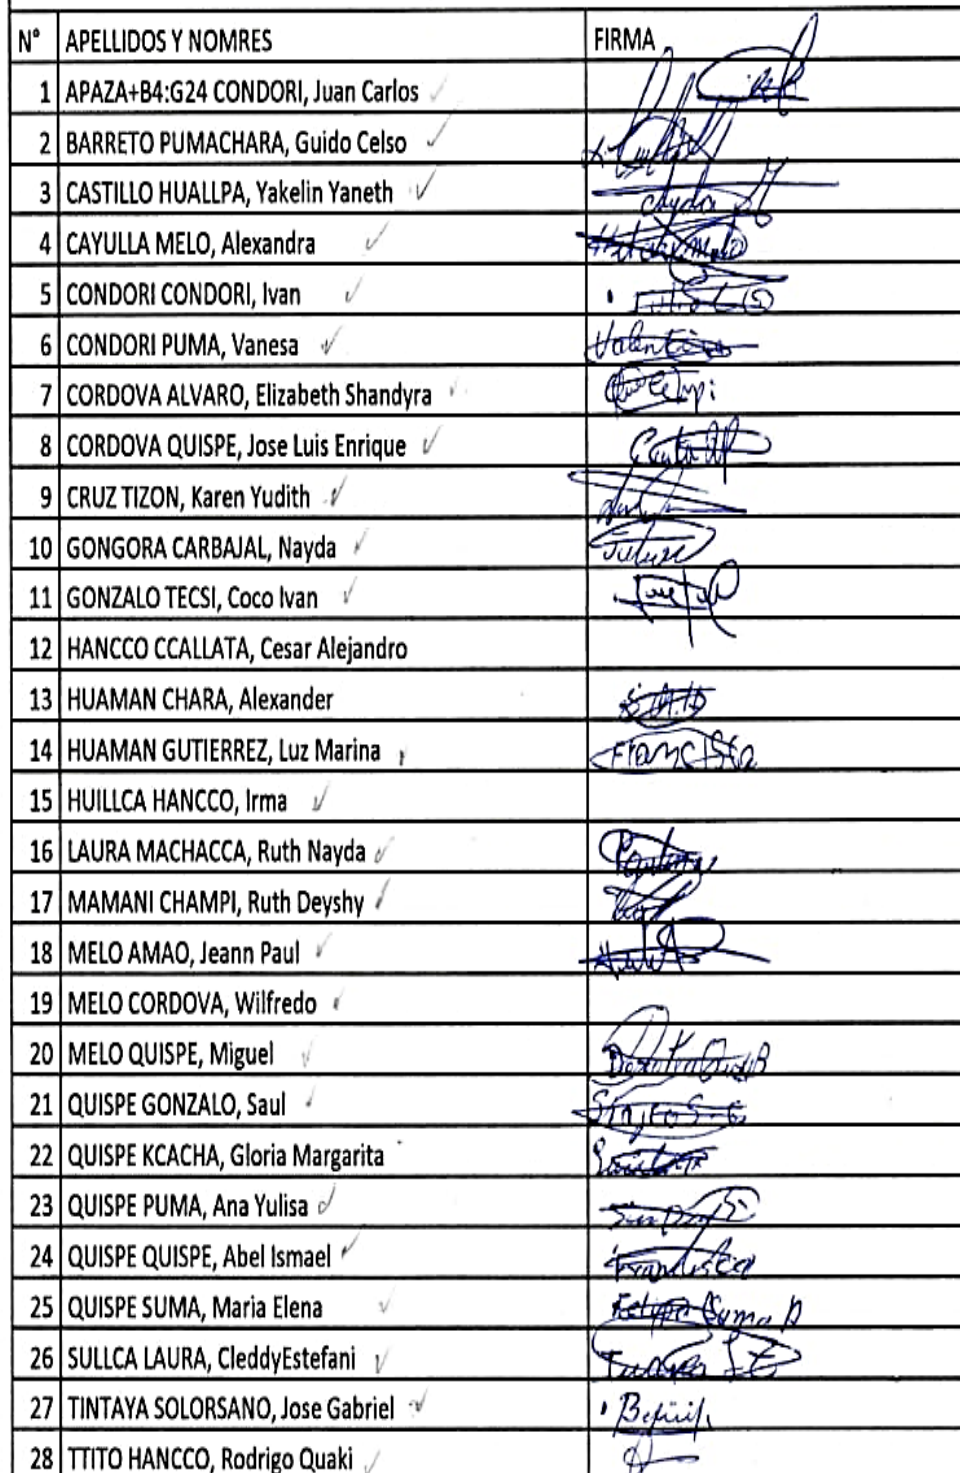 N° APELLIDOS Y NOMRES FIRMA
1 APAZA+B4:G24 CONDORI, Juan Carlos
2 BARRETO PUMACHARA, Guido Celso
3 CASTILLO HUALLPA, Yakelin Yaneth
4 CAYULLA MELO, Alexandra
5 CONDORI CONDORI, Ivan
6 CONDORI PUMA, Vanesa Valentina
7 CORDOVA ALVARO, Elizabeth Shandyra
8 CORDOVA QUISPE, Jose Luis Enrique
9 CRUZ TIZON, Karen Yudith
10 GONGORA CARBAJAL, Nayda
11 GONZALO TECSI, Coco Ivan
12 HANCCO CCALLATA, Cesar Alejandro
13 HUAMAN CHARA, Alexander
14 HUAMAN GUTIERREZ, Luz Marina Francisca
15 HUILLCA HANCCO, Irma
16 LAURA MACHACCA, Ruth Nayda
17 MAMANI CHAMPI, Ruth Deyshy
18 MELO AMAO, Jeann Paul
19 MELO CORDOVA, Wilfredo
20 MELO QUISPE, Miguel
21 QUISPE GONZALO, Saul
22 QUISPE KCACHA, Gloria Margarita
23 QUISPE PUMA, Ana Yulisa
24 QUISPE QUISPE, Abel Ismael Francisca
25 QUISPE SUMA, Maria Elena
26 SULLCA LAURA, CleddyEstefani
27 TINTAYA SOLORSANO, Jose Gabriel
28 TTITO HANCCO, Rodrigo Quaki